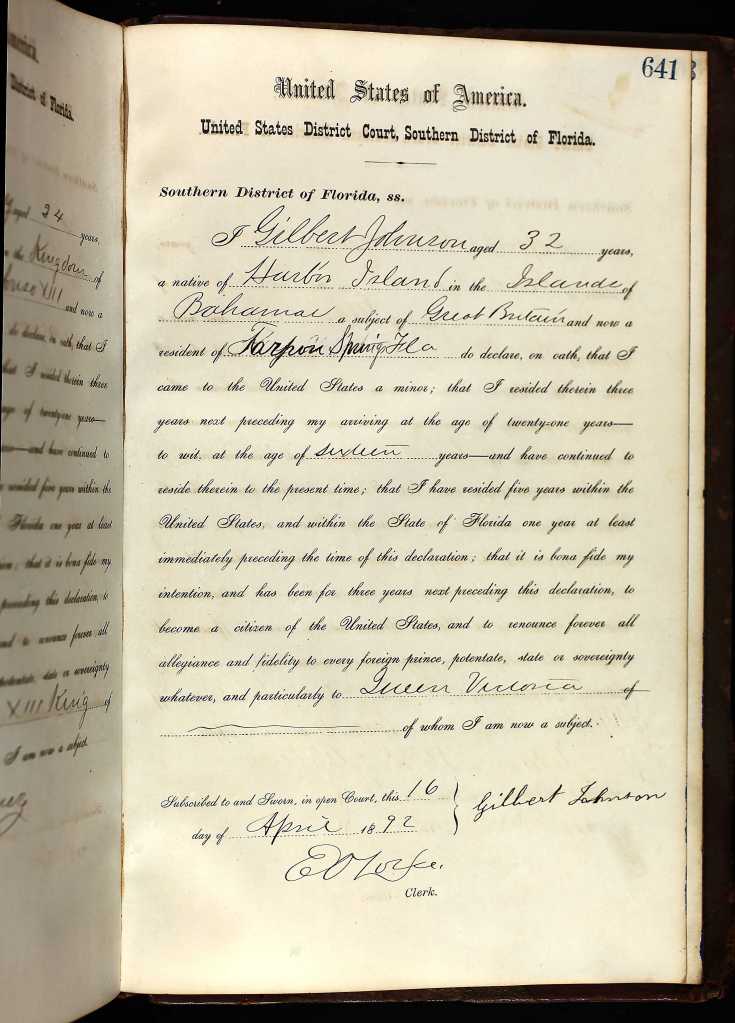 merica.
District of Florida.
aged 24
years,
the Kingdom of
onso XIII
and now a
do declare, on oath, that I
that I resided therein three
age of twenty-one years—
and have continued to
resided five years within the
Florida one year at least
; that it is bona fide my
preceding this declaration, to
and to renounce forever all
potentate, state or sovereignty
XIII King of
I am now a subject.
641
United States of America.
United States District Court, Southern District of Florida.
Southern District of Florida, ss.
I Gilbert Johnson aged 32 years,
a native of Harbor Island in the Islands of
Bahamas a subject of Great Britain and now a
resident of Tarpon Spring Fla do declare, on oath, that I
came to the United States a minor; that I resided therein three
years next preceding my arriving at the age of twenty-one years—
to wit, at the age of sixteen years—and have continued to
reside therein to the present time; that I have resided five years within the
United States, and within the State of Florida one year at least
immediately preceding the time of this declaration; that it is bona fide my
intention, and has been for three years next preceding this declaration, to
become a citizen of the United States, and to renounce forever all
allegiance and fidelity to every foreign prince, potentate, state or sovereignty
whatever, and particularly to Queen Victoria of
of whom I am now a subject.
Subscribed to and Sworn, in open Court, this 16
day of April 1892
Gilbert Johnson
E O Locke.
Clerk.